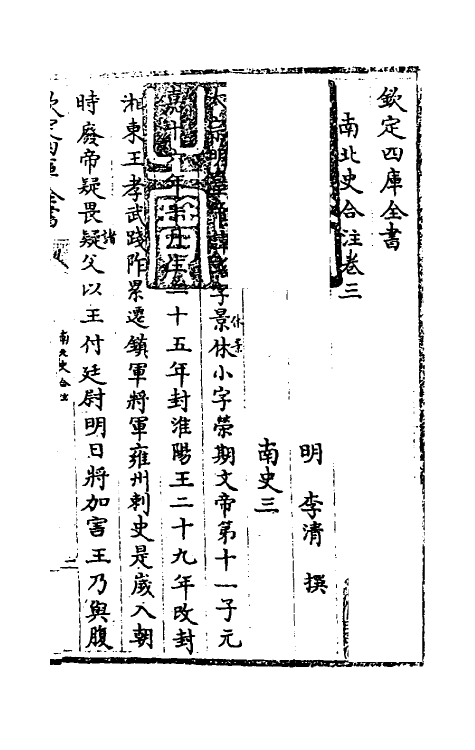 欽定四庫全書
南北史合注卷三
明 李清 撰
南史三
太宗明皇帝諱彧字景休小字榮期文帝第十一子元
休景
嘉十六年十月生二十五年封淮陽王二十九年改封
湘東王孝武踐阼累遷鎮軍將軍雍州刺史是歲入朝
時廢帝疑畏疑父以王付廷尉明日將加害王乃與腹
諸
欽定四庫全書
南北史合注